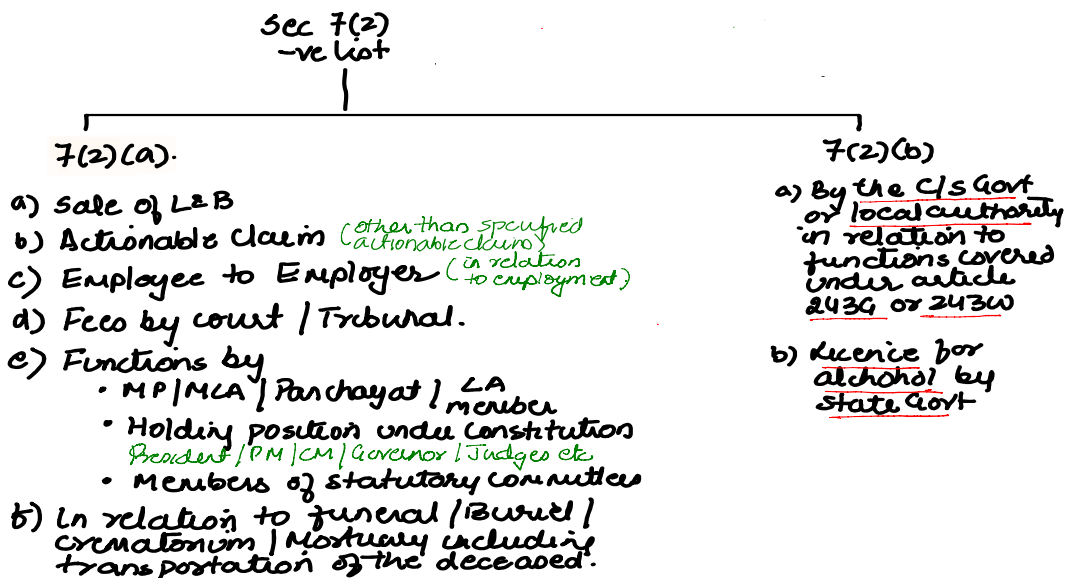 Sec 7(2)
-ve list
7(2)(a).
a) Sale of L&B
b) Actionable Claim (other than specified
actionable claim)
c) Employee to Employer (in relation
to employment)
d) Fees by court / Tribunal.
e) Functions by
• MP/MLA / Panchayat / LA
member
• Holding position under constitution
President / PM / CM / Governor / Judges etc
• Members of statutory committees
f) In relation to funeral / Buriel /
crematorium / Mortuary including
transportation of the deceased.
7(2)(b)
a) By the C/S Govt
or local authority
in relation to
functions covered
under article
243G or 243W
b) Licence for
alchohol by
State Govt